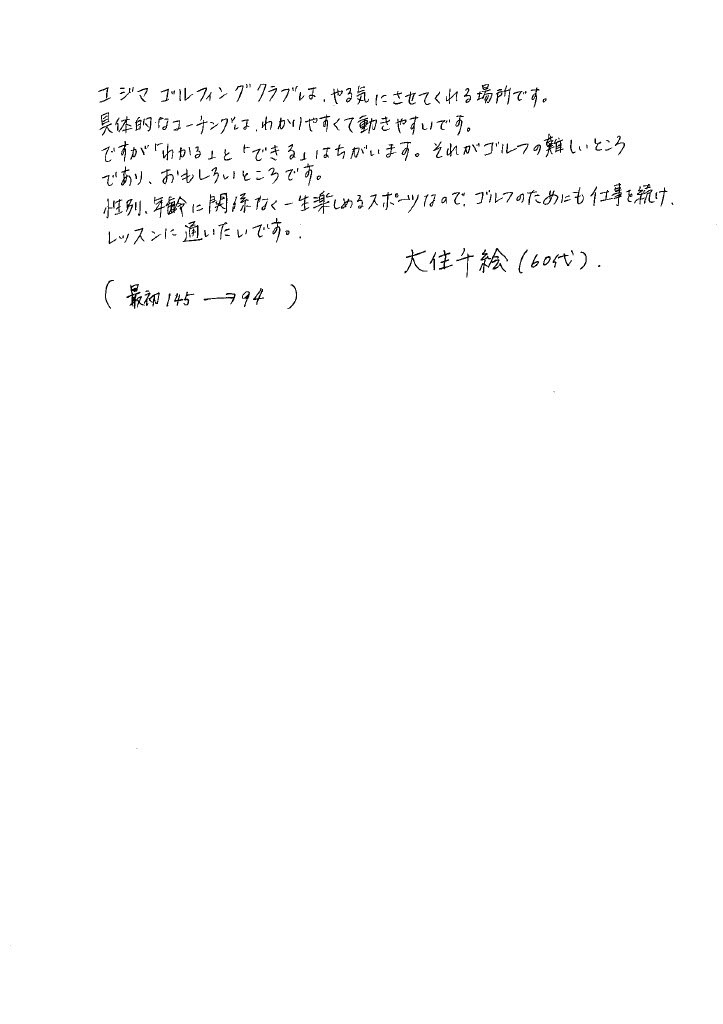 エジマ ゴルフィングクラブは、やる気にさせてくれる場所です。
具体的なコーチングは、わかりやすくて動きやすいです。
ですが「わかる」と「できる」はちがいます。それがゴルフの難しいところ
であり、おもしろいところです。
性別、年齢に関係なく一生楽しめるスポーツなので、ゴルフのためにも仕事を続け、
レッスンに通いたいです。
大住千絵(60代).
(最初145→94)